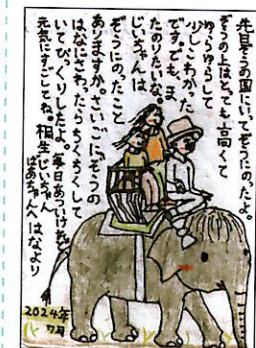 先日ぞうの国にいってぞうにのったよ。
ぞうの上はとっても高くて
ゆらゆらして
少しこわかった
です。でも、ま
たのりたいな。
じいちゃんは
ぞうにのったこと
ありますか。さいごに、ぞうの
はなにさわったらちくちくして
いてびっくりしたよ。毎日あついけれど
元気にすごしてね。桐生じいちゃん
ばあちゃんへ はなより
2024年
7月